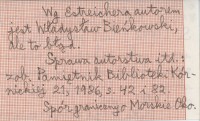 Wg Estreichera autorem
jest Władysław Bieńkowski,
ale to błąd.
Sprawa autorstwa itd.:
zob. Pamiętnik Biblioteki Kór-
nickiej 21, 1986, s. 42 i 82.
Spór graniczny o Morskie Oko.